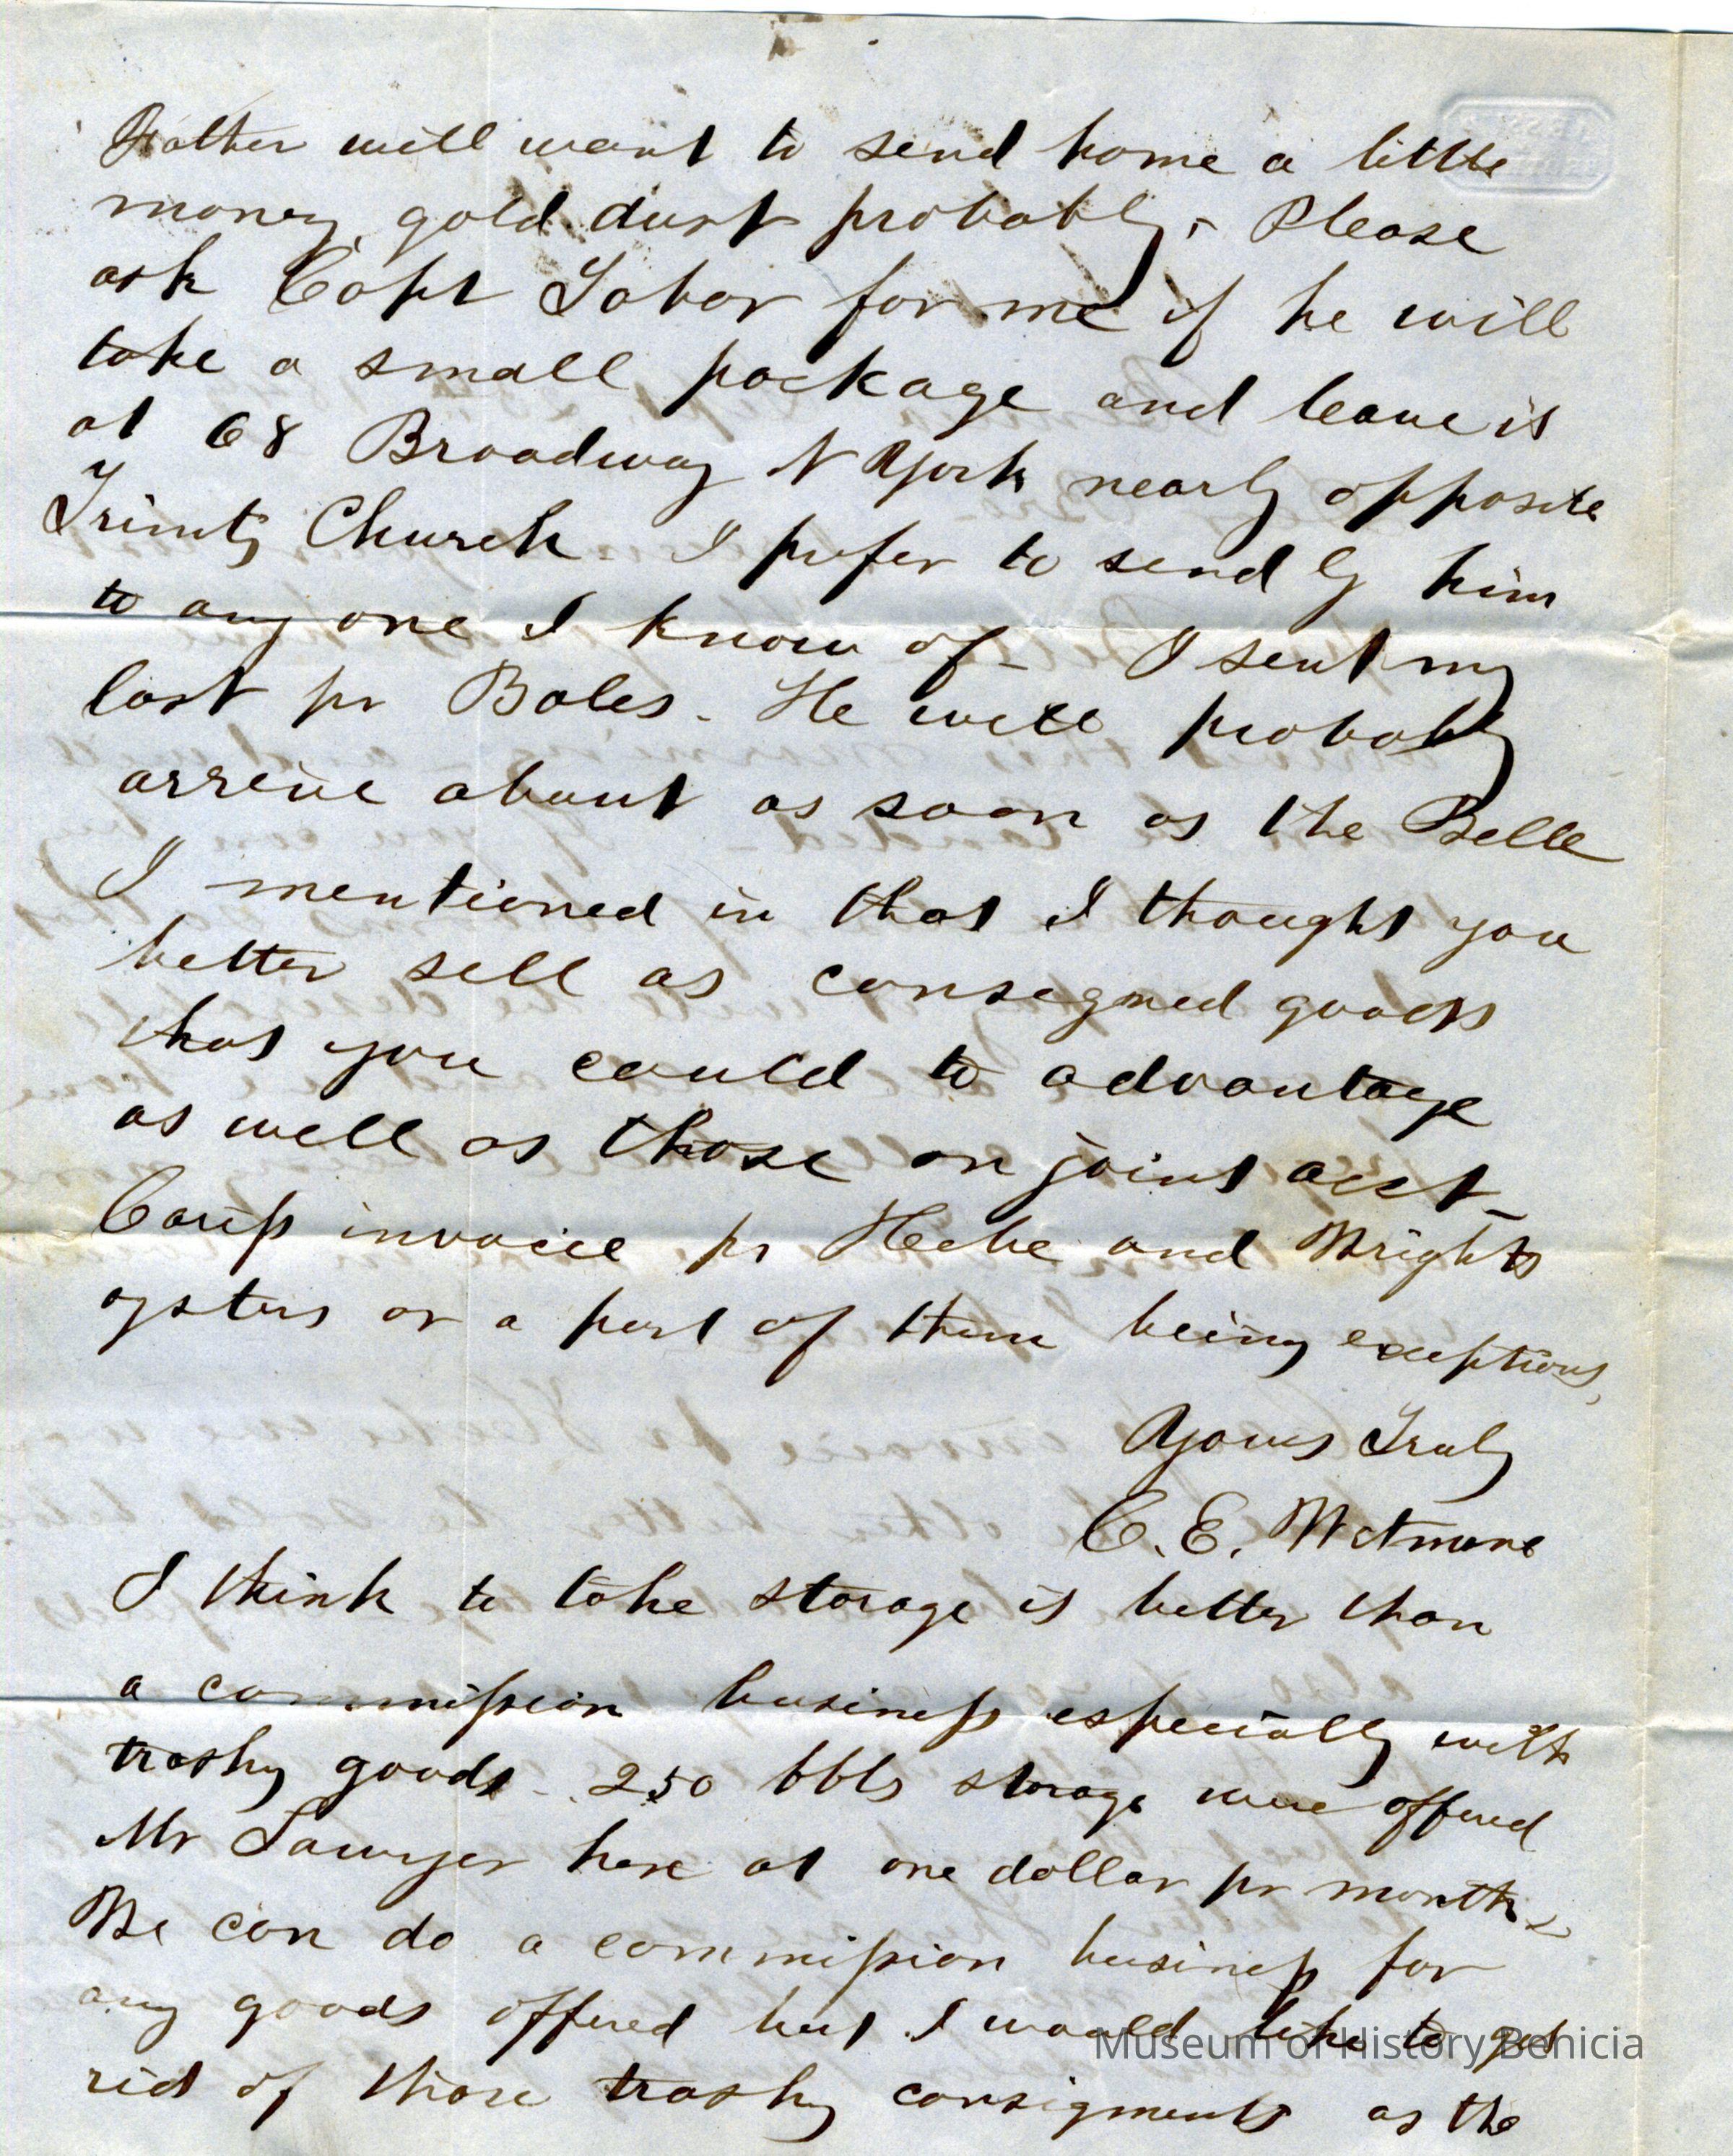 Father will want to send home a little
money, gold dust probably. Please
ask Capt Tabor for me if he will
take a small package and leave is
at 68 Broadway N York nearly opposite
Trinity Church. I prefer to send by him
to any one I know of - I sent my
last pr Boles. He will probably
arrive about as soon as the Belle
I mentioned in that I thought you
better sell as consegned goods
that you could to advantage
as well as those on joint acct -
invoice pr Hebe and Wrights
oysters or a part of them being exceptions,
Yours Truly
C. E. Wetmore
I think to take storage is better than
a commission business especially with
trashy goods - 250 bbls storage were offered
Mr Sawyer here at one dollar pr month -
We can do a commission business for
any goods offered but I would like to get
rid of those trashy consigments as the
Museum of History Benicia